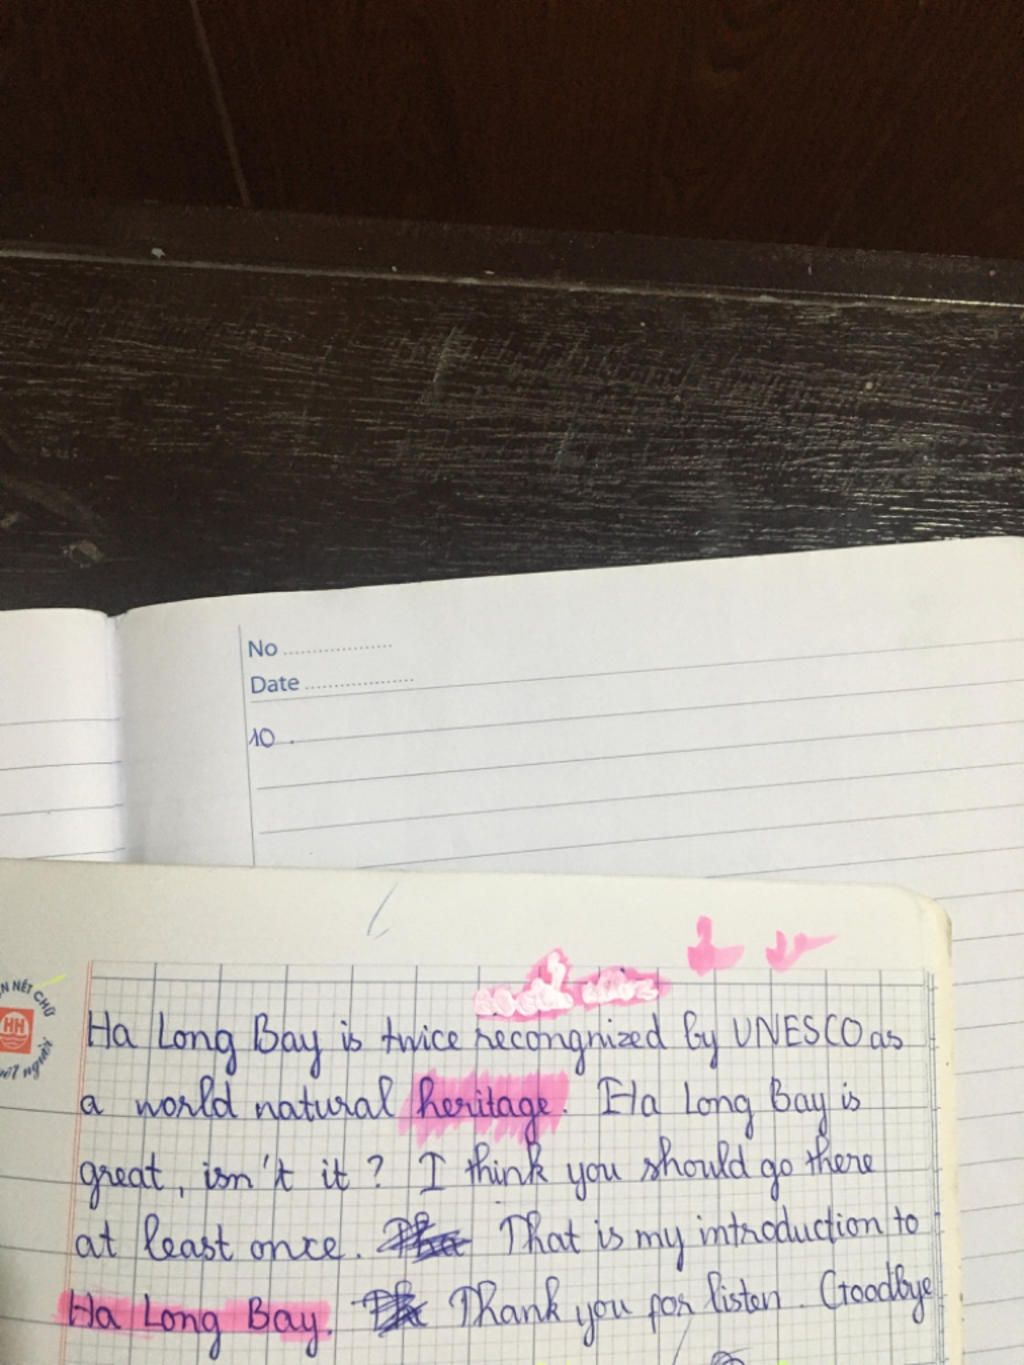 No
Date
10.
N NÉT CHỮ
HH
Ha Long Bay is twice recongnized by UNESCO as
a world natural heritage. Ha Long Bay is
great, isn't it? I think you should go there
at least once. That is my introduction to
Ha Long Bay. Thank you for listen. Goodbye